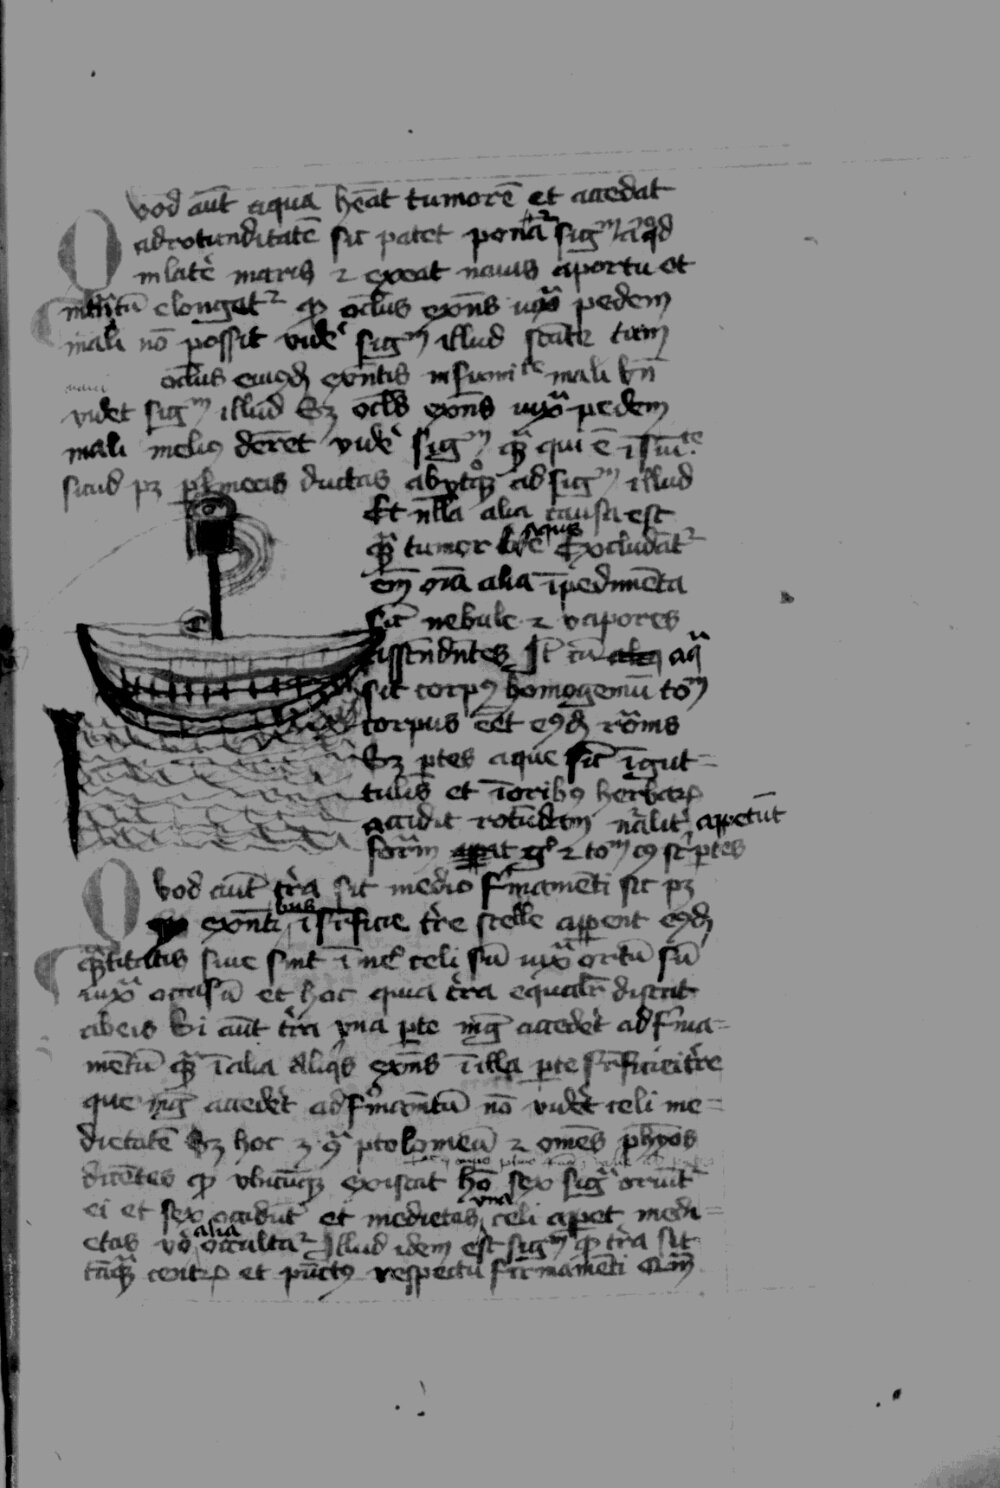 Quod aūt aqua hēat tumorē et accedat
ad rotunditatē sic patet ponat᷑ sigᷠ aliqd
in later̄ maris ⁊ exeat nauis aportu et
intm̄ elonget᷑ qꝫ oclus exn̄s iuxᷓ pedem
mali nō possit vider̄ sigᷠ illud stāte tam
oclus eiusdē exn̄tis in sumite mali bn̄
videt sigᷠ illud Sꝫ oclus exn̄s iuxᷓ pedem
mali meliꝰ deret vider̄ sigᷠ qᷓ qui ē ī suīte
sicud pꝫ per lineas ductas ab utqꝫ ad sigᷠ illud
Et nlla alia causa est
qᷓ tumor aque Excludāt᷑
em̄ oīa alia īpedimēta
sic̄ nebule ⁊ vapores
assendn̄tes It̄ cū aqᷓ
sit corpꝰ homogeniū toᷠ
corpus eēt eiꝰdē rōnis
Sꝫ ptes aque sic̄ ī gut=
tulis et ī roribꝰ herbarꝝ
accidit rotūdam nālit̄ appetūt
formā gͦ ⁊ toᷠ cꝰ st̄ ptes
Quod aūt tr̄a sit in medio firmamēti sic pꝫ
exn̄tibus ī suꝑficie tr̄e stelle appent eiꝰdē
qᷓtitatis siue sint ī meͦ celi siū iuxᷓ ortū siū
iuxᷓ occasū et hoc quia tr̄a equalit̄ distat
ab eis Si aūt tr̄a vna pte mḡ accedet ad firma=
mētū qᷓ ī alia aliqs exn̄s ī illa pte suꝑficiei tr̄e
que mḡ accedet ad firmamētū nō videt celi me=
dietatē Sꝫ hoc ꝫ ꝯᷓ ptolomeū ⁊ omēs phyōs
dicētes qꝫ vbicūqꝫ existat hō sex sigᷓ oriūt᷑
ei et sex occidūt et medietas vna celi apet medi=
etas vͦ alia occultat᷑ Illud idem est sigᷠ qꝫ tr̄a sit
tāqᷓ centrꝝ et pūctꝰ respectu firmamēti Qm̄